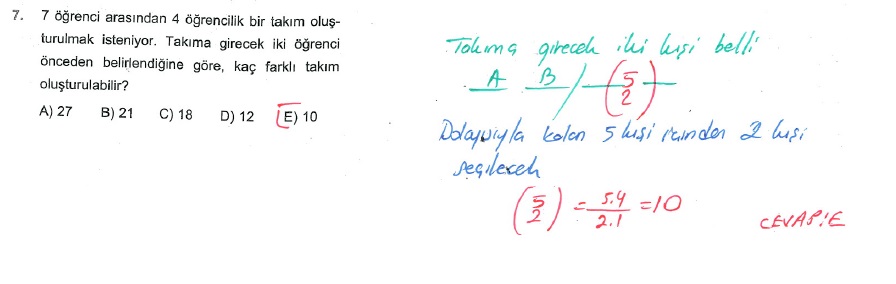 7. 7 öğrenci arasından 4 öğrencilik bir takım oluş-
turulmak isteniyor. Takıma girecek iki öğrenci
önceden belirlendiğine göre, kaç farklı takım
oluşturulabilir?
A) 27 B) 21 C) 18 D) 12 E) 10
Takıma girecek iki kişi belli
A B / (5 2)
Dolayısıyla kalan 5 kişi içinden 2 kişi
seçilecek
(5 2) = 5.4 / 2.1 = 10
CEVAP: E